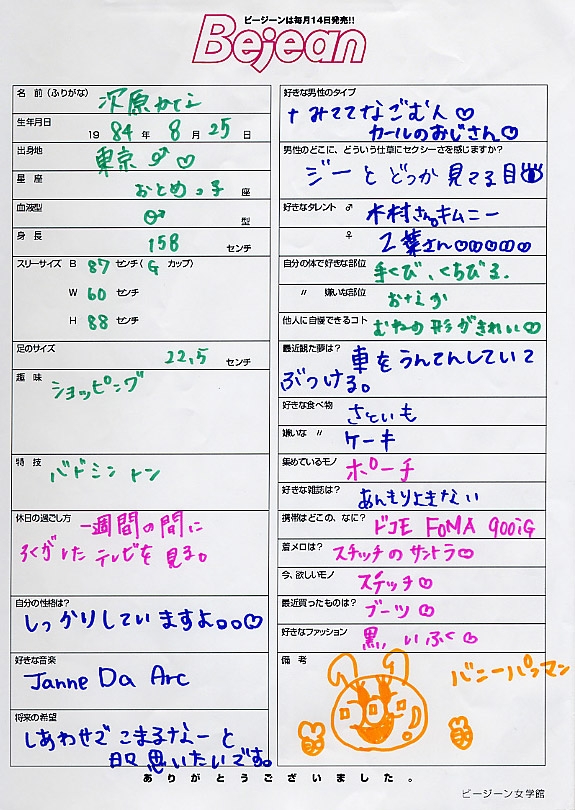 ビージーンは毎月14日発売!!
Bejean
名 前(ふりがな) 次原かな
生年月日 1984年 8月 25日
出身地 東京 ♂ ♡
星 座 おとめっ子 座
血液型 O♂ 型
身 長 158 センチ
スリーサイズ B 87 センチ( G カップ)
W 60 センチ
H 88 センチ
足のサイズ 22.5 センチ
趣 味 ショッピング
特 技 バドミントン
休日の過ごし方 一週間の間に
ろくがした テレビを見る。
自分の性格は?
しっかりしていますよ。。♡
好きな音楽
Janne Da Arc
将来の希望
しあわせでこまるなーと
日々思いたいです。
好きな男性のタイプ
みててなごむ人♡
カールのおじさん♡
男性のどこに、どういう仕草にセクシーさを感じますか?
ジーとどっか見てる目
好きなタレント ♂ 木村さん。キムニー
♀ 乙葉さん♡♡♡♡♡
自分の体で好きな部位 手くび、くちびる.
〃 嫌いな部位 おなか
他人に自慢できるコト むねの形がきれい♡
最近観た夢は? 車をうんてんしていて
ぶつける。
好きな食べ物 さといも
嫌いな 〃 ケーキ
集めているモノ ポーチ
好きな雑誌は? あんまりよまない
携帯はどこの、なに? ドコモ FOMA 900iG
着メロは? スチッチのサントラ♡
今、欲しいモノ スチッチ♡
最近買ったものは? ブーツ♡
好きなファッション 黒いふく♡
備 考
バニーパンマン
ありがとうございました。
ビージーン女学館